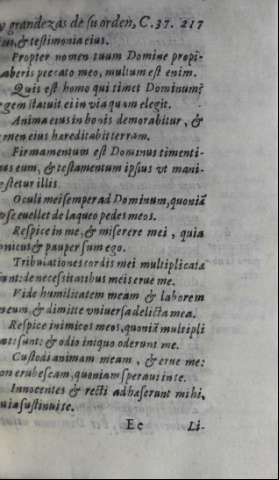 y grandezas de su orden, C. 37. 217
tum, & testimonia eius.
Propter nomen tuum Domine propi-
aberis peccato meo, multum est enim.
Quis est homo qui timet Dominum?
egem statuit ei in via quam elegit.
Anima eius in bonis demorabitur, &
emen eius hareditabit terram.
Firmamentum est Dominus timenti-
us eum, & testamentum ipsius vt mani-
estetur illis.
Oculi mei semper ad Dominum, quoniã
pse euellet de laqueo pedes meos.
Respice in me, & miserere mei, quia
nicus & pauper sum ego.
Tribulationes cordis mei multiplicata
unt: de necessitatibus meis erue me.
Vide humilitatem meam & laborem
meum, & dimitte vniuersa delicta mea.
Respice inimicos meos, quoniã multipli
ati sunt: & odio iniquo oderunt me.
Custodi animam meam, & erue me:
on erubescam, quoniam speraui in te.
Innocentes & recti adhaserunt mihi,
uia sustinui te.
Ee Li-